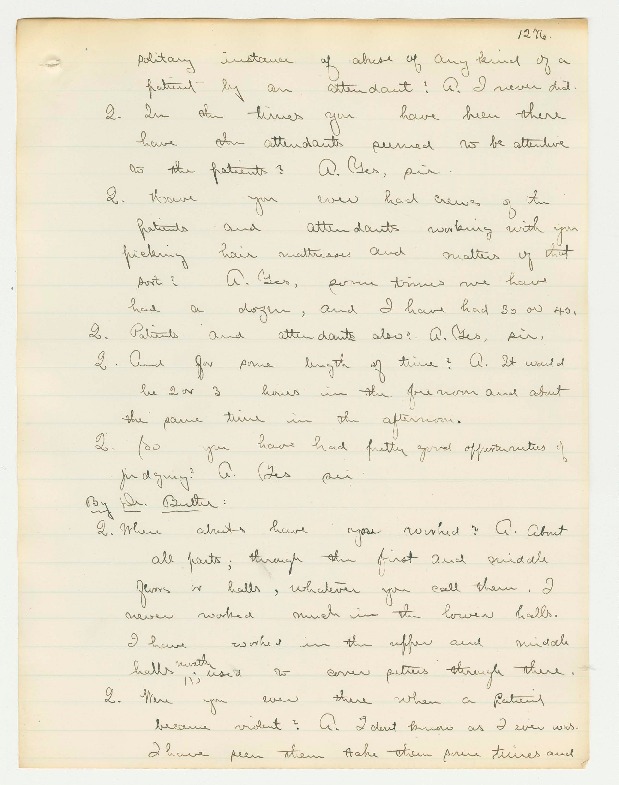 1276.
solitary instance of abuse of any kind of a
patient by an attendant? A. I never did.
Q. In the times you have been there
have the attendants seemed to be attentive
to the patients? A. Yes, sir.
Q. Have you ever had crews of the
patients and attendants working with you
picking hair mattresses and matters of that
sort? A. Yes, some times we have
had a dozen, and I have had 30 or 40.
Q. Patients and attendants also? A. Yes, sir.
Q. And for some length of time? A. It would
be 2 or 3 hours in the forenoon and about
the same time in the afternoon.
Q. So you have had pretty good opportunities of
judging? A. Yes sir
By Dr. Butler:
Q. Where abouts have you worked? A. About
all parts, through the first and middle
floors or halls, whatever you call them. I
never worked much in the lower halls.
I have worked in the upper and middle
halls north used to through there.
Q. Were you ever there when a patient
became violent? A. I dont know as I ever was.
I have seen them take them some times and